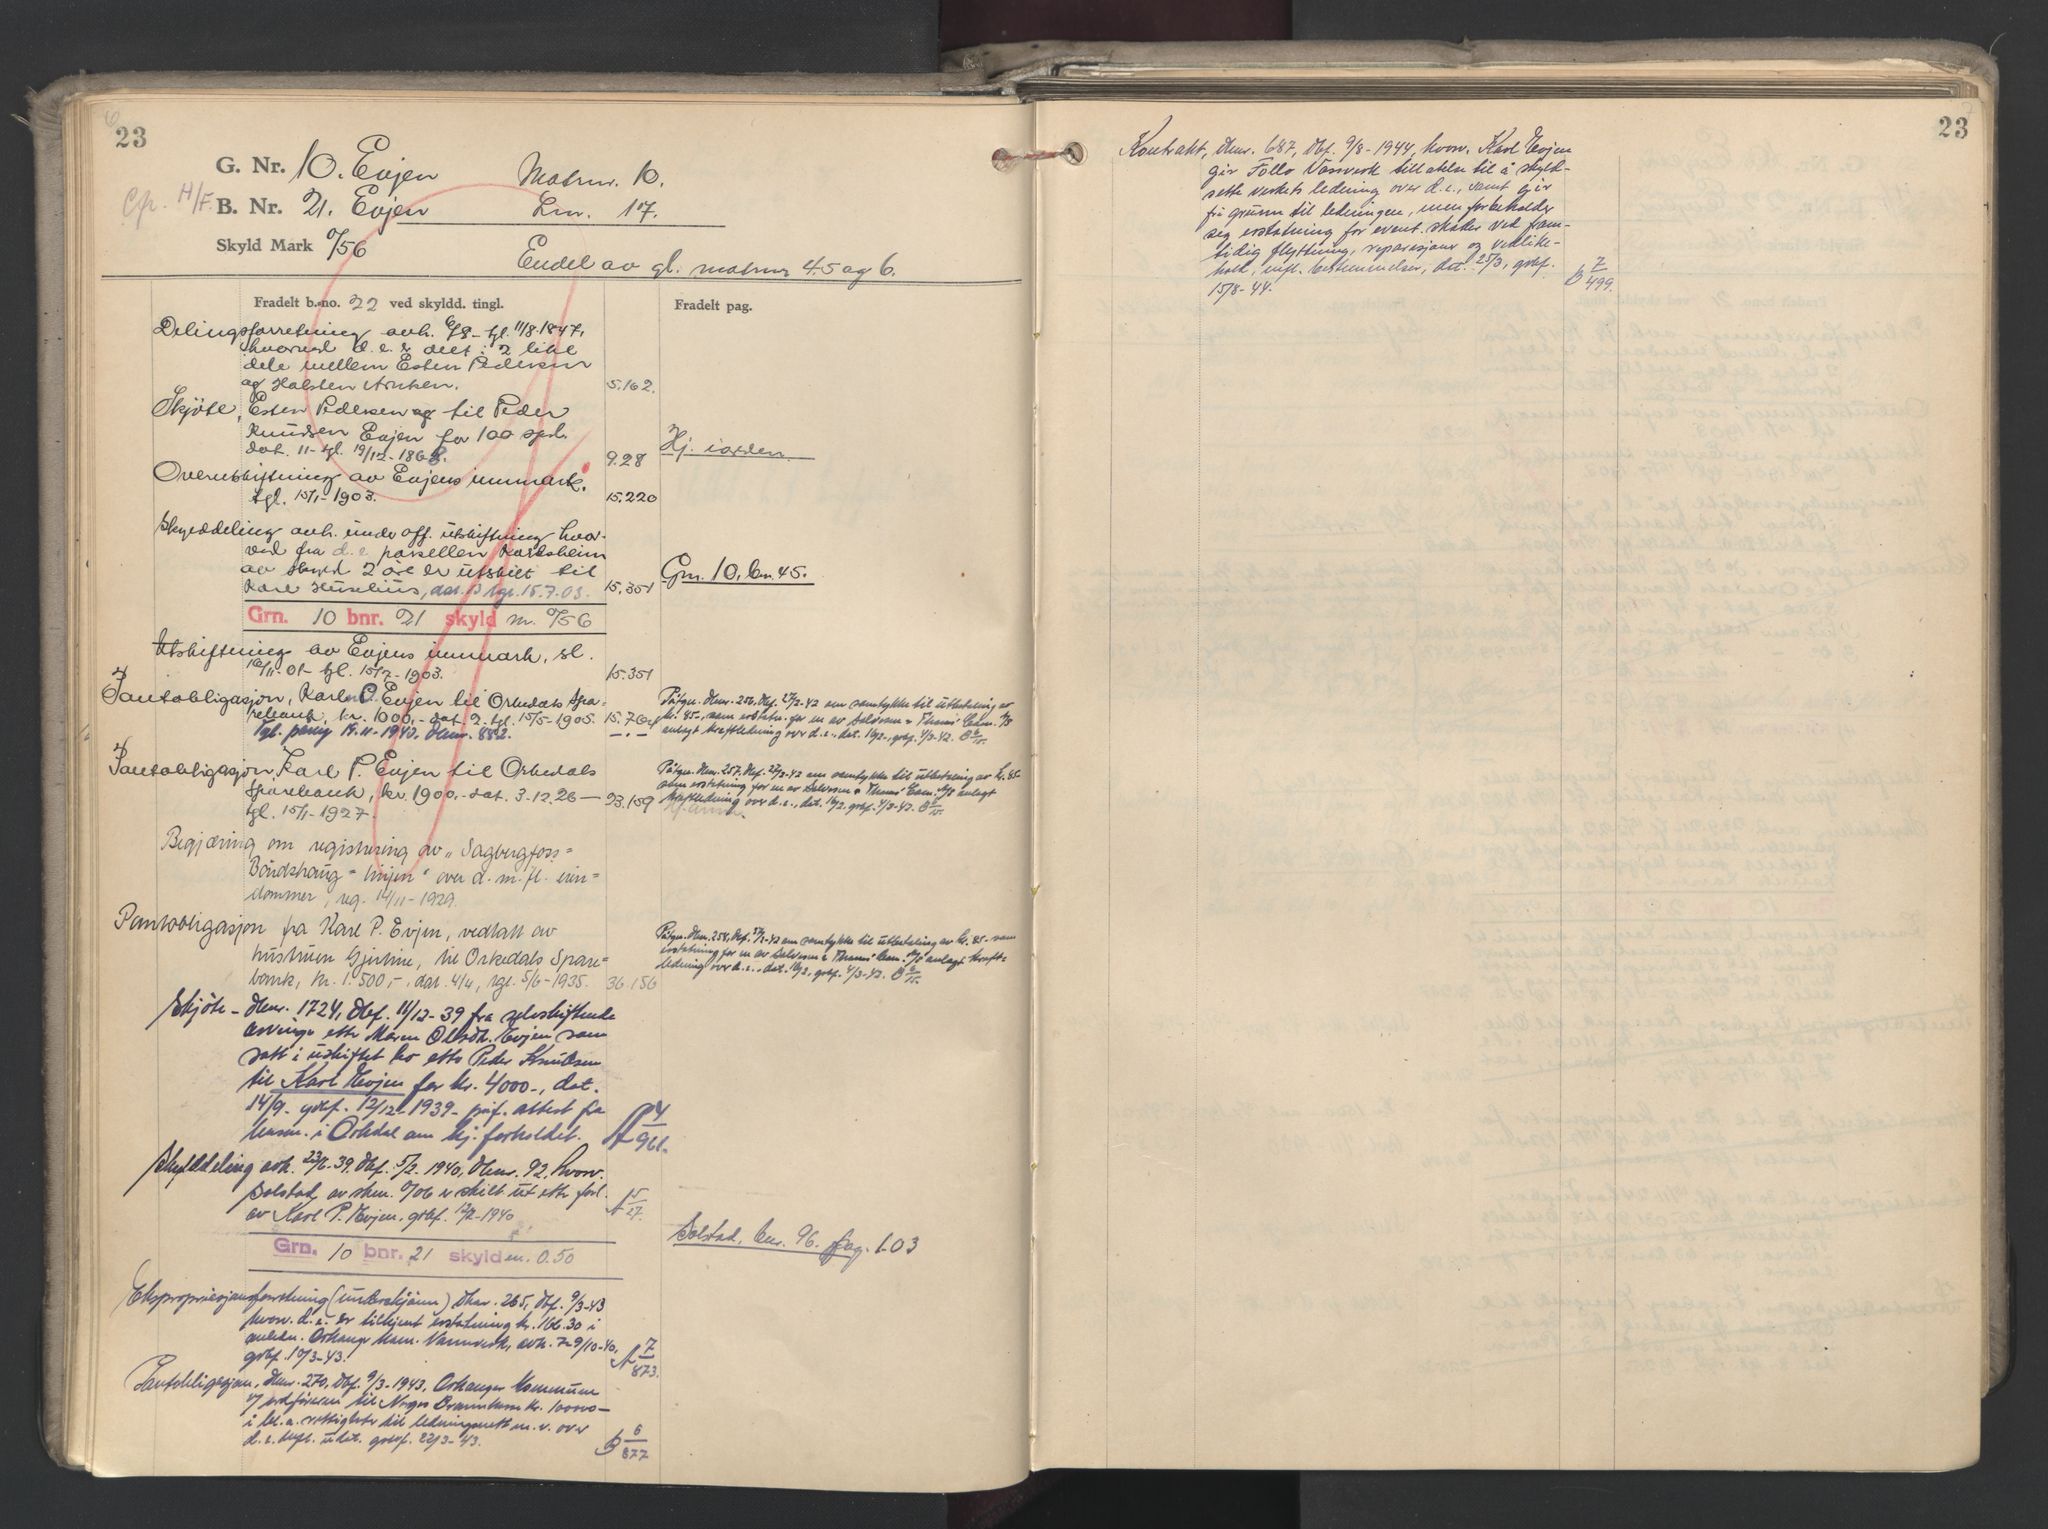 23
G. Nr. 10. Evjen Matrnr. 10.
B. Nr. 21. Evjen Lnr. 17.
Skyld Mark 0/56
Endel av gl. matrnr 4.5 og 6.
Fradelt b.-no. 22 ved skyldd. tingl.
Fradelt pag.
Delingsforretning avh. 6/8 - tgl. 11/8-1847,
hvorved d. e. er delt i 2 like
dele mellem Esten Pedersen
og Halsten
5.162.
Skjöte, Esten Pedersen til Peder
Knudsen Evjen for 100 spd.
dat. 11- tgl. 19/12-1868.
9.28
Hj. i orden.
Overutskiftning av Evjens inmark.
tgl. 15/1-1903.
15.220
Skylddeling avh. under off. utskiftning hvor-
ved fra d. e parsellen Karlsheim
av skyld 2 öre er utskilt til
Karl Huselius, dat. tgl. 15.7.03.
15.351
Gnr. 10, bnr. 45.
Grn. 10 bnr. 21 skyld m. 0/56
Utskiftning av Evjens inmark, sl.
16/11-01- tgl. 15/7-1903.
15.351
Pantobligasjon, Karl P. Evjen til Orkedals Spa-
rebank, kr. 1000,- dat. 2. tgl. 15/5-1905.
15.764
Påtgn. dknr. 256, dbf. 27/2-42 om samtykke til utbetaling av
kr. 85,- som erstatn. for en av Salvesen & Thams' Com. A/S
anlagt kraftledning over d. e., dat. 16/2-, gdbf. 4/3-42.
Tgl. paany 14.11-1940, dknr. 882.
Pantobligasjon, Karl P. Evjen til Orkedals
Sparebank, kr. 1900,- dat. 3.12.26 —
tgl. 15/1-1927.
23.159
Påtgn. dknr. 257, dbf. 27/2-42 om samtykke til utbetaling av kr. 85-
som erstatning for en av Salvesen & Thams' Com. A/S anlagt
kraftledning over d. e., dat. 16/2, gdbf. 4/3-42.
Begjæring om registrering av „Sagbergfoss-
Bårdshaug-linjen" over d. m. fl. eien-
dommer, reg. 14/11-1929.
Pantobligasjon fra Karl P. Evjen, vedtatt av
hustruen Gjertine, til Orkedals Spare-
bank, kr. 1.500,-, dat. 4/4, tgl. 5/6-1935.
36.156
Påtgn. dknr. 258, dbf. 27/2-42 om samtykke til utbetaling av kr. 85.- som
erstatning for en av Salvesen & Thams' Com. A/S anlagt kraft-
ledning over d. e., dat. 16/2, gdbf. 4/3-42.
Skjöte - dknr. 1724, dbf. 11/12-39 fra selvskiftende
arvinger etter Maren Olsdtr. Evjen som
satt i uskiftet bo etter Peder Knudsen
til Karl Evjen for kr. 4000-, dat.
14/9- gdbf. 12/12-1939- påf. attest fra
lensm. i Orkdal om hj. forholdet.
A 4/961.
Skylddeling avh. 23/6-39, dbf. 5/2. 1940, dknr. 92, hvorv.
Solstad, av skm. 0/06 er skilt ut etter forl.
av Karl P. Evjen, gdbf. 12/2-1940
A 5/27.
Solstad, bnr. 96. pag. 103
Grn. 10 bnr. 21 skyld m. 0.50
Ekspropriasjonsforretning (underskjönn) dknr. 265, dbf. 9/3-43
hvorv. d. e. er tilkjent erstatning kr. 166.30 i
anledn. Orkanger kom. Vannverk, avh. 7-9/10-40,
gdbf. 10/3-43.
A 7/873.
Pantobligasjon, dknr. 270, dbf. 9/3-1943, Orkanger kommune
v/ ordföreren til Norges Brannkasse kr. 100000-
i bl. a. rettigheter til ledningsnett m. v. over
d. e. gdbf. 22/3-43.
B 6/877
23
Kontrakt, dknr. 687, dbf. 9/8-1944, hvorv. Karl Evjen
gir Follo Vassverk tillatelse til å skyld-
sette verkets ledning over d. e., samt gir
fri grunn til ledningen, men forbeholder
seg erstatning for event. skader ved fram-
tidig flyttning, reparasjoner og vedlike-
hold, mfl. bestemmelser, dat. 25/3, gdbf.
15/8-44.
B 7/499.